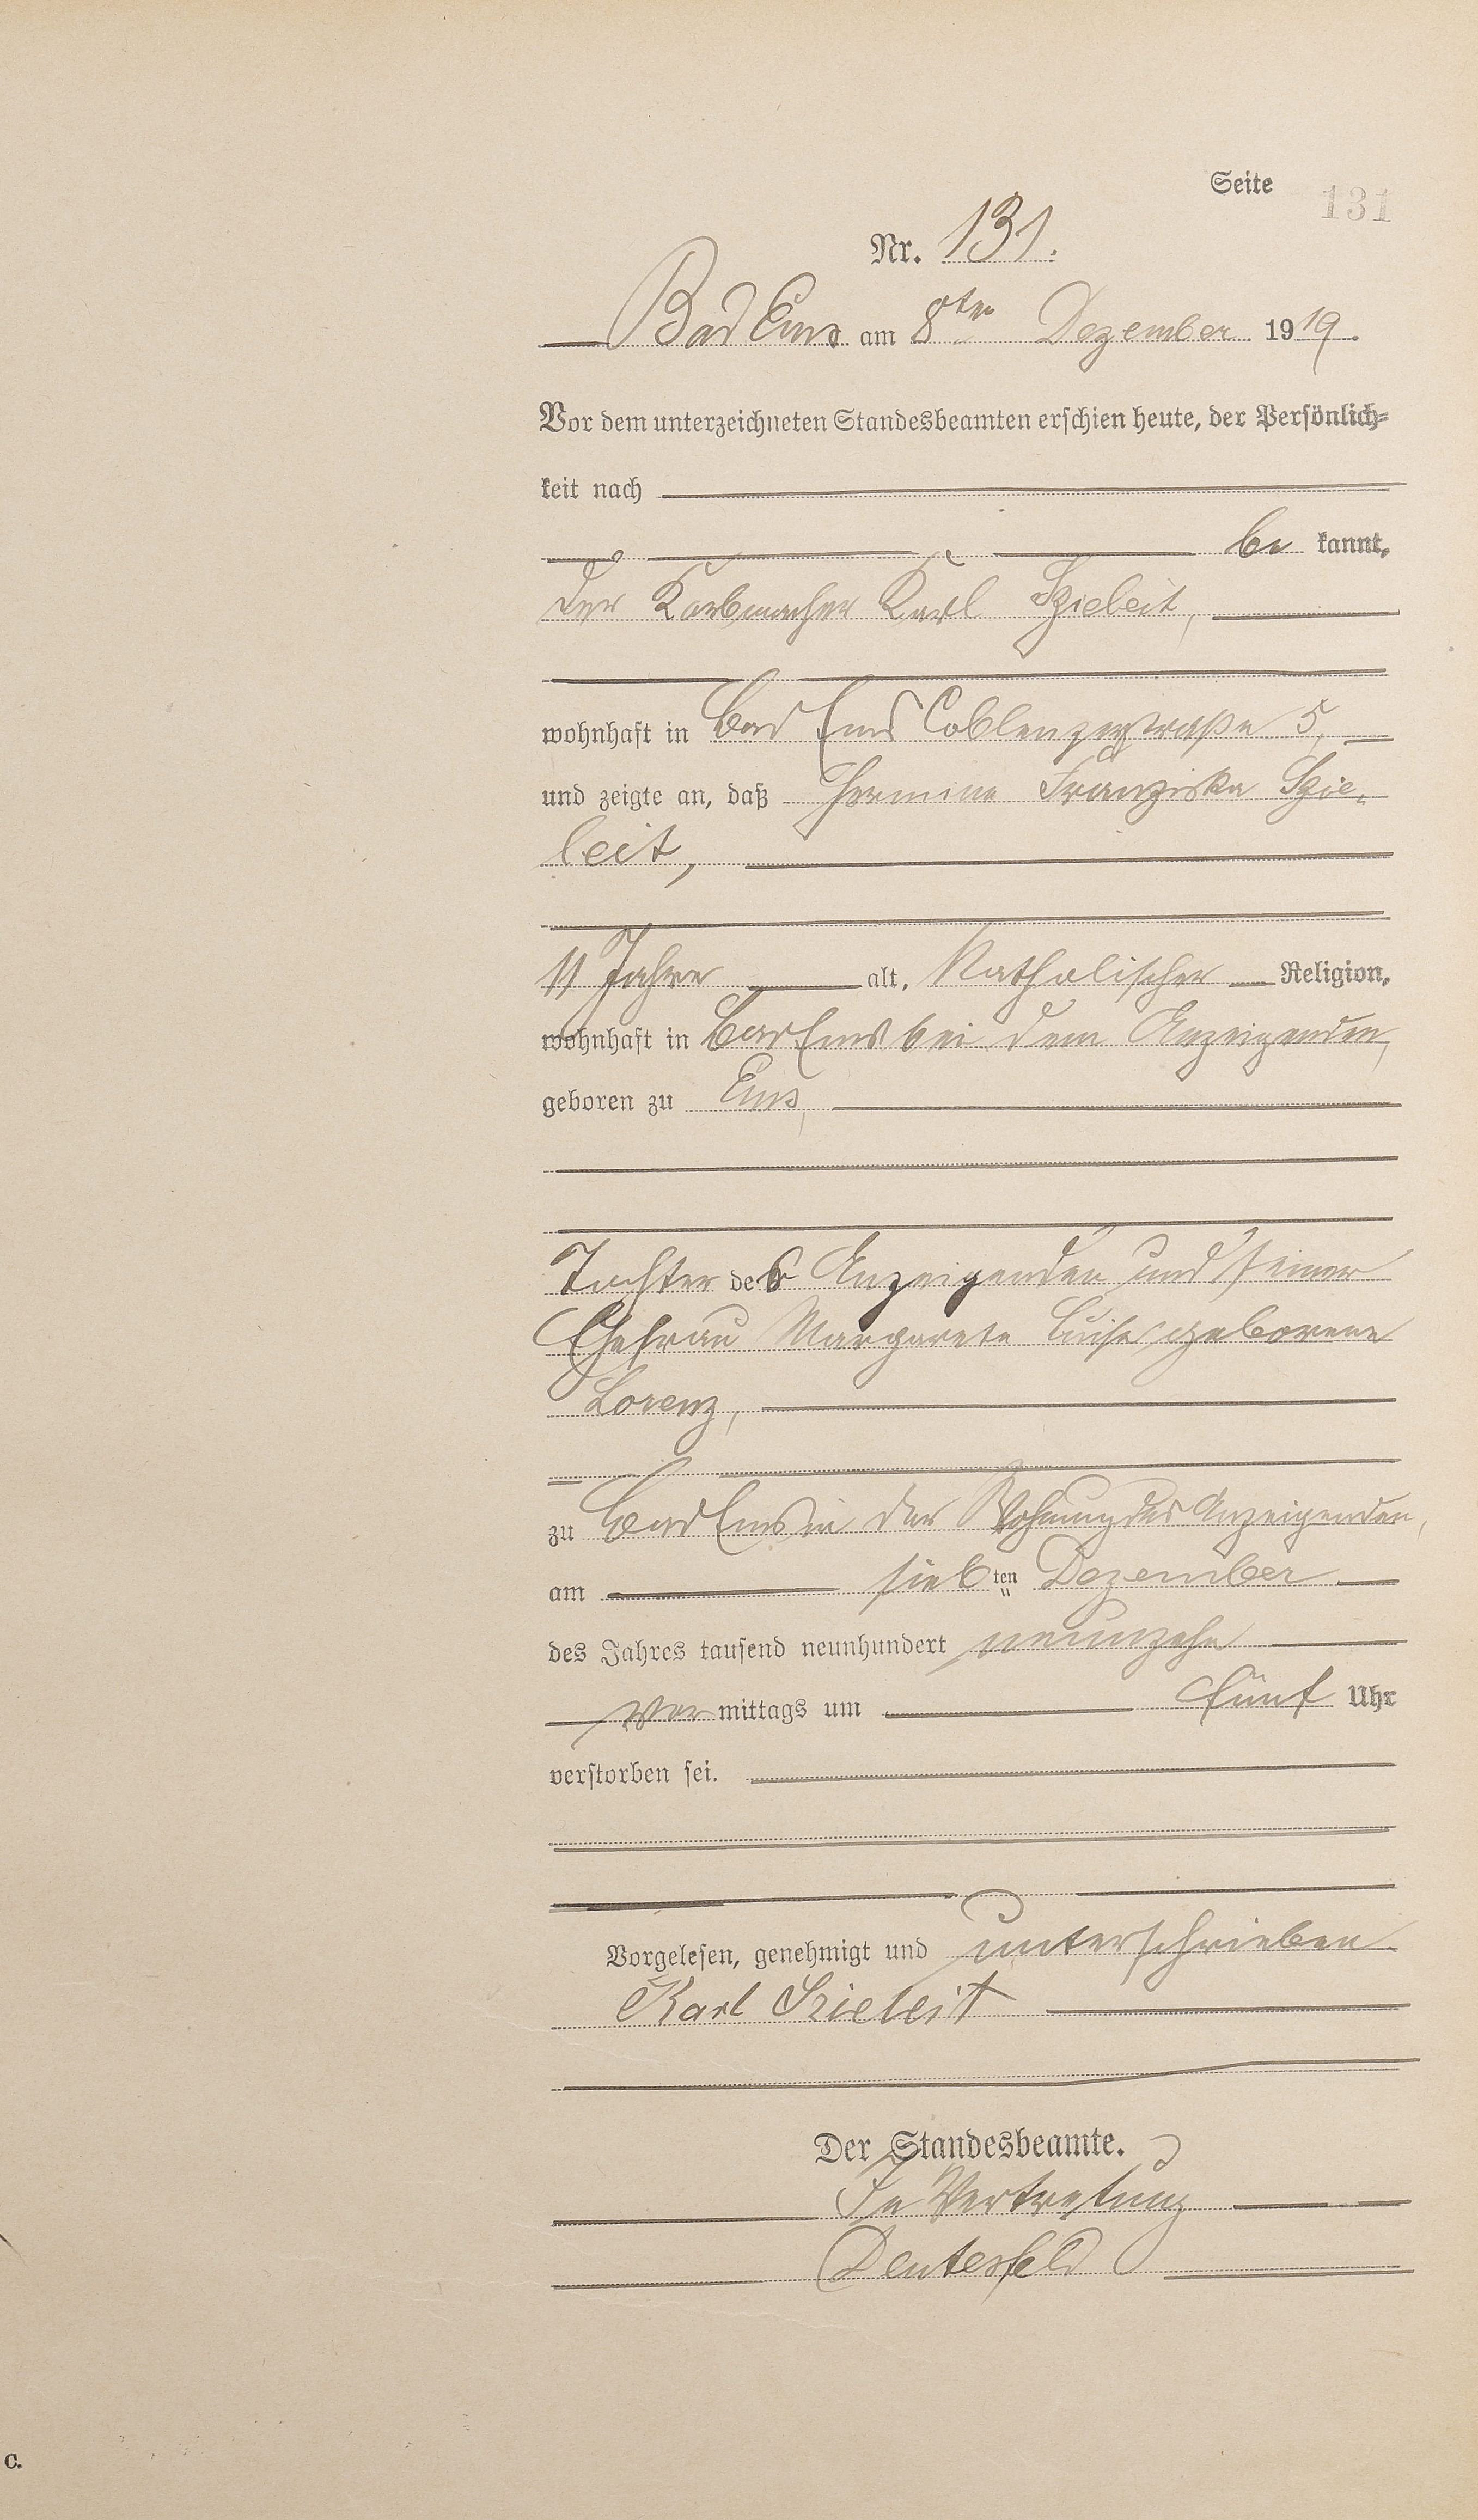 Seite 131
Nr. 131.
Bad Ems am 8ten Dezember 1919.
Vor dem unterzeichneten Standesbeamten erschien heute, der Persönlich-
keit nach
be kannt,
der Korbmacher Karl Szieleit,
wohnhaft in Bad Ems Coblenzerstraße 5,
und zeigte an, daß Hermine Franziska Szie-
leit,
11 Jahre alt, katholischer Religion,
wohnhaft in Bad Ems bei dem Anzeigenden,
geboren zu Ems,
Tochter des Anzeigenden und seiner
Ehefrau Margarete Luise geborene
Lorenz,
zu Bad Ems in der Wohnung des Anzeigenden,
am sieb ten Dezember
des Jahres tausend neunhundert neunzehn
Vor mittags um fünf Uhr
verstorben sei.
Vorgelesen, genehmigt und unterschrieben
Karl Szieleit
Der Standesbeamte.
In Vertretung
C.